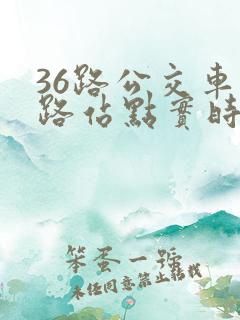 36路公交車
路佔點實時
笨蛋一號
未经同意禁止转载